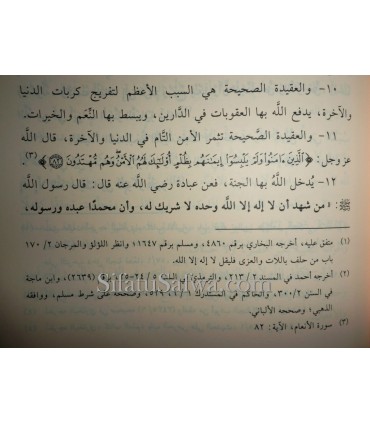 ١٠- والعقيدة الصحيحة هي السبب الأعظم لتفريج كربات الدنيا
والآخرة، يدفع الله بها العقوبات في الدَّارين، ويبسط بها النِّعم والخيرات.
١١- والعقيدة الصَّحيحة تثمر الأمن التَّام في الدنيا والآخرة، قال الله
عز وجل: ﴿الَّذِينَ ءَامَنُوا وَلَمْ يَلْبِسُوا إِيمَانَهُم بِظُلْمٍ أُولَٰئِكَ لَهُمُ الْأَمْنُ وَهُم مُّهْتَدُونَ ﴿٨٢﴾﴾ (٣).
١٢- يُدخل اللَّهُ بها الجنة، فعن عبادة رضي الله عنه قال: قال رسول الله
ﷺ: «من شهد أن لا إله إلا اللَّه وحده لا شريك له، وأن محمدًا عبده ورسوله،
(١) متفق عليه، أخرجه البخاري برقم ٤٨٦٠، ومسلم برقم ١٦٤٧، وانظر اللؤلؤ والمرجان ٢/ ١٧٠
باب من حلف باللات والعزى فليقل لا إله إلا الله.
(٢) أخرجه أحمد في المسند ٢/ ٢١٣، والترمذي ٥/ ٢٤-٢٥ برقم (٢٦٣٩)، وابن ماجة
في السنن ٢/ ٣٠٠، والحاكم في المستدرك ١/ ٥٢٩، وصححه على شرط مسلم، ووافقه
الذهبي؛ وصححه الألباني.
(٣) سورة الأنعام، الآية: ٨٢
SifatuSafwa.com